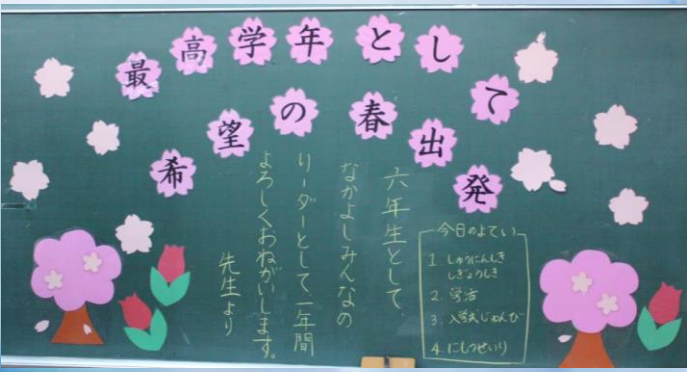 最高学年として
希望の春出発
六年生として、
なかよしみんなの
リーダーとして一年間
よろしくおねがいします。
先生より
今日のよてい
1. しゅうにんしき
しぎょうしき
2. 学活
3. 入学式じゅんび
4. にもつせいり